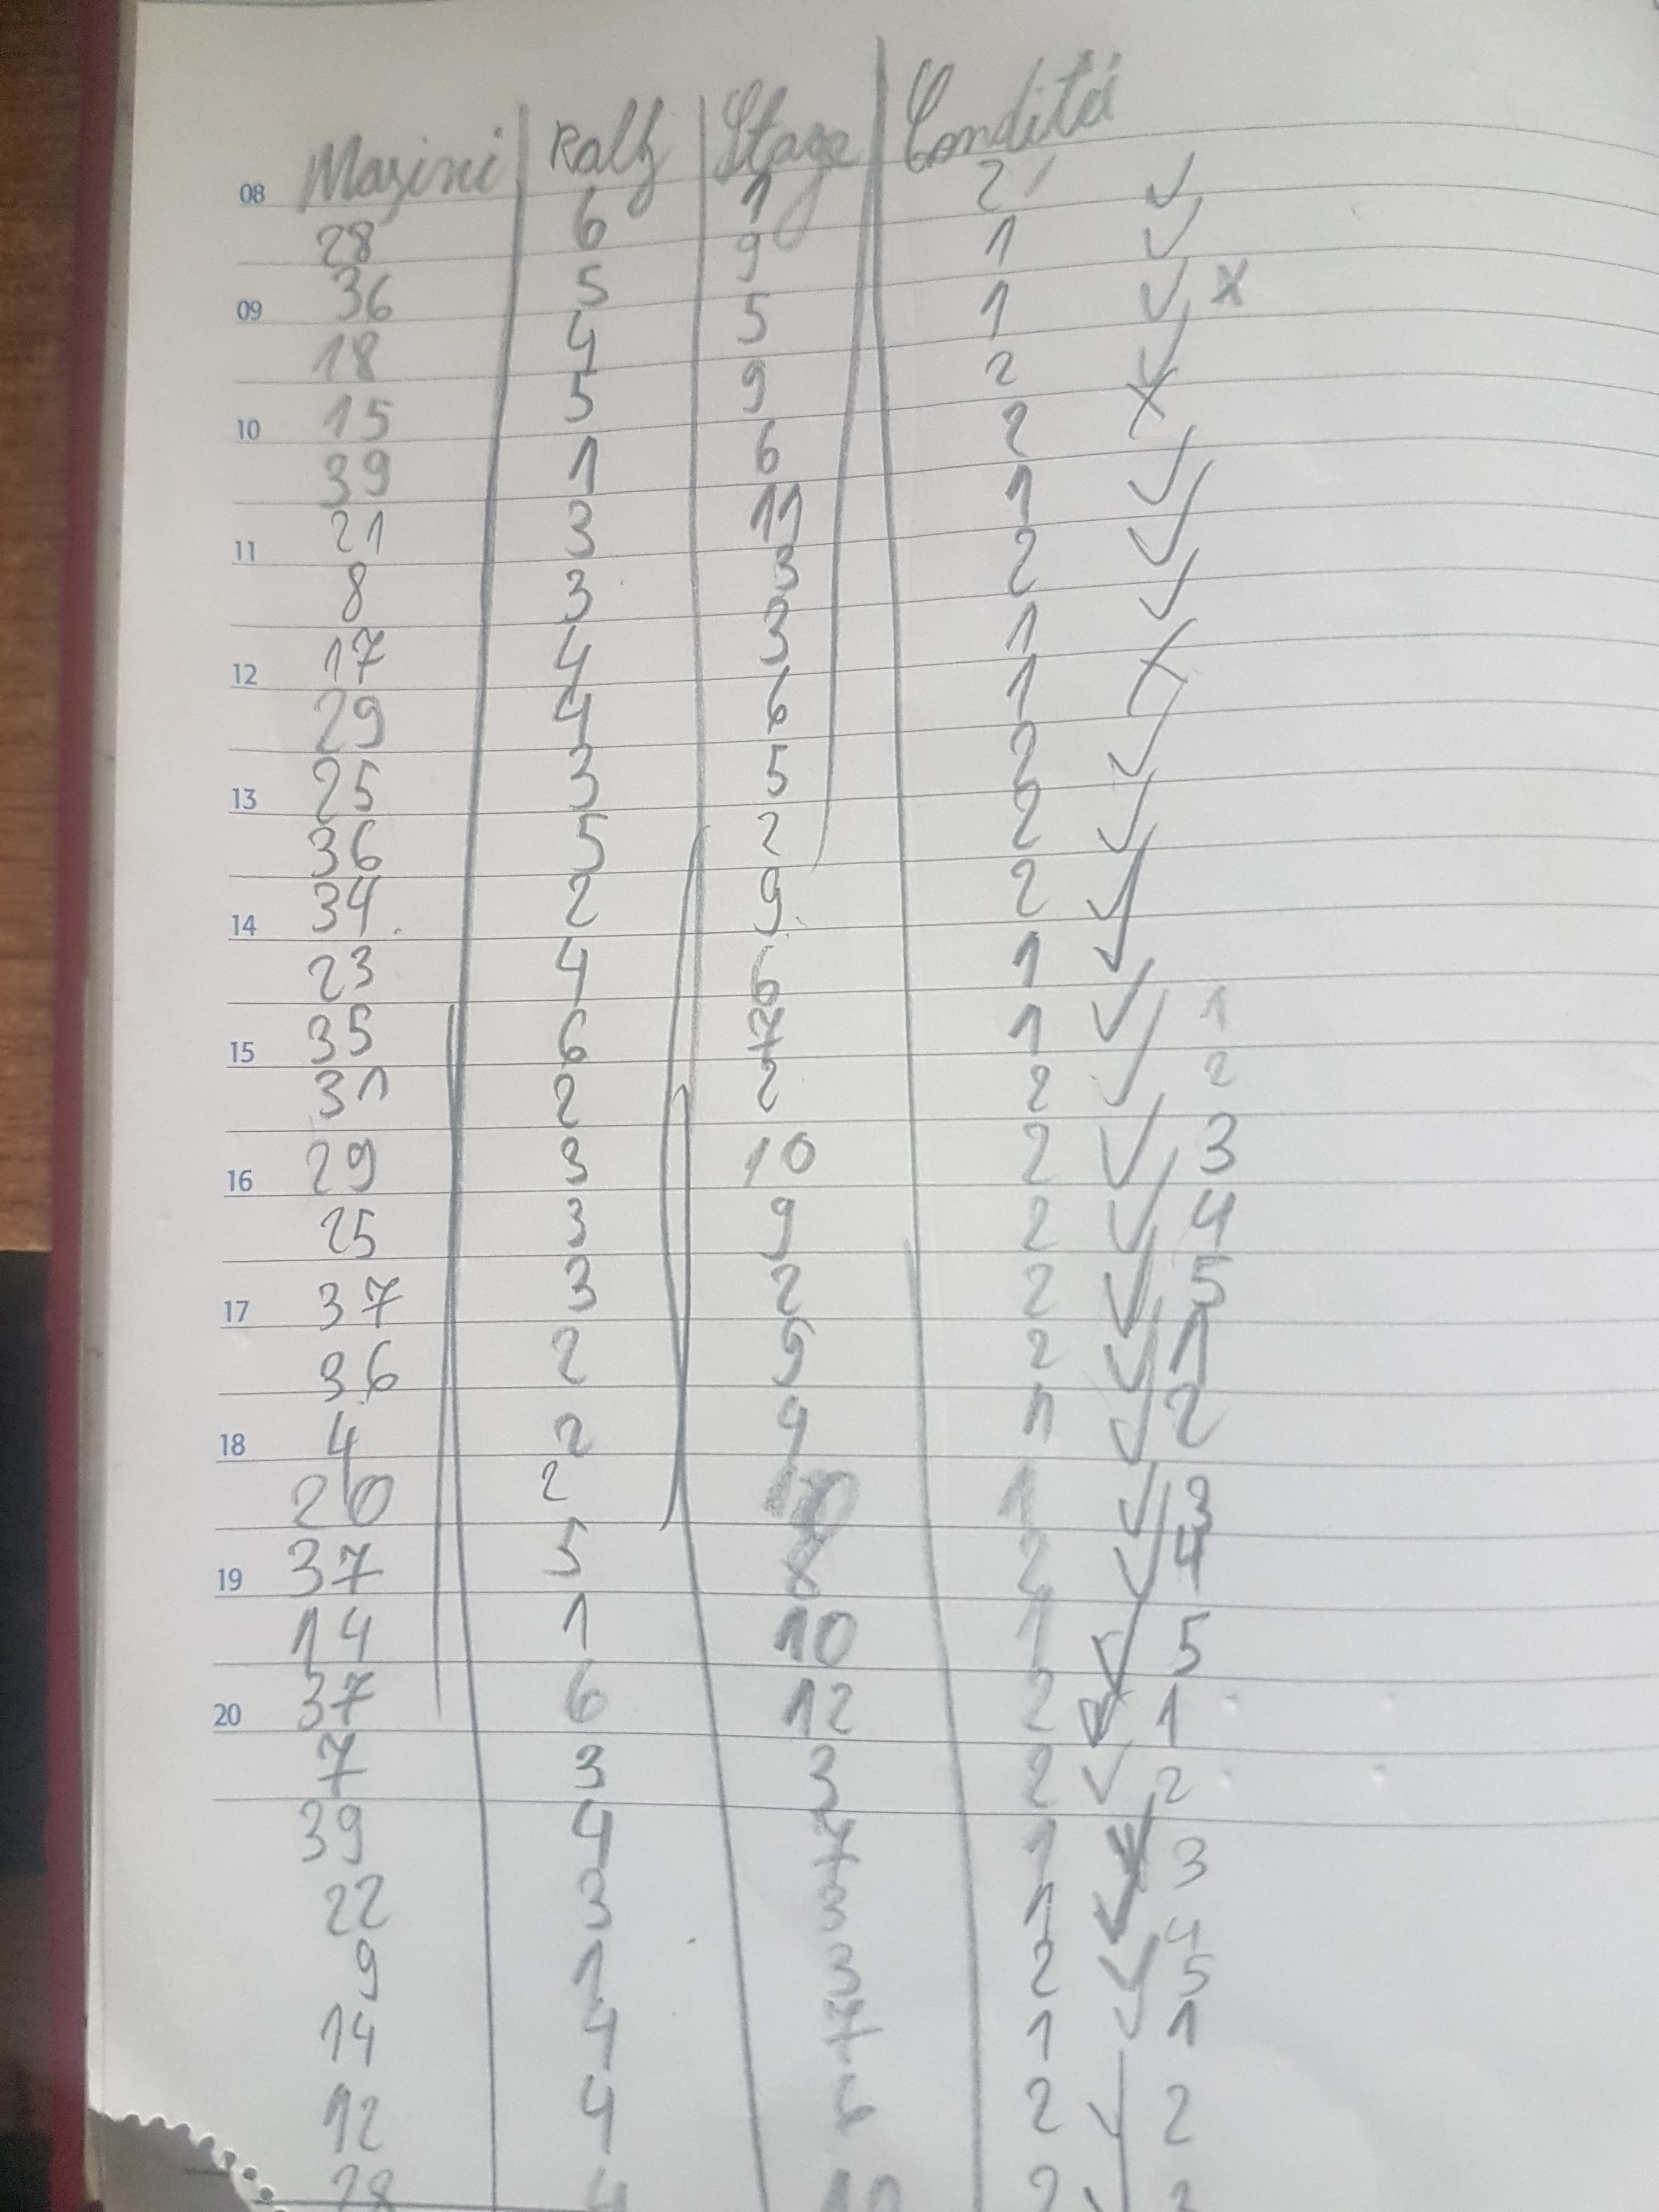 Mașini Rally Stage Condiții
08 28 6 1 2 ✓
36 5 9 1 ✓
09 18 4 5 1 ✓ x
15 5 9 2 ✓
10 39 1 6 2 X
21 3 11 1 ✓
11 8 3 3 2 ✓
17 4 3 1 ✓
12 29 4 6 1 X
25 3 5 2 ✓
13 36 5 2 2 ✓
34 2 9 2 ✓
14 23 4 6 1 ✓
35 6 7 1 ✓ 1
15 31 2 2 2 ✓ 2
29 3 10 2 ✓ 3
16 25 3 9 2 ✓ 4
37 3 2 2 ✓ 5
17 36 2 9 2 ✓ 1
4 2 9 1 ✓ 2
18 20 2 10 1 ✓ 3
37 5 8 2 ✓ 4
19 14 1 10 1 ✓ 5
37 6 12 2 ✓ 1
20 7 3 3 2 ✓ 2
39 4 7 1 ✓ 3
22 3 3 1 ✓ 4
9 1 3 2 ✓ 5
14 4 7 1 ✓ 1
12 4 6 2 ✓ 2
28 4 2 ✓